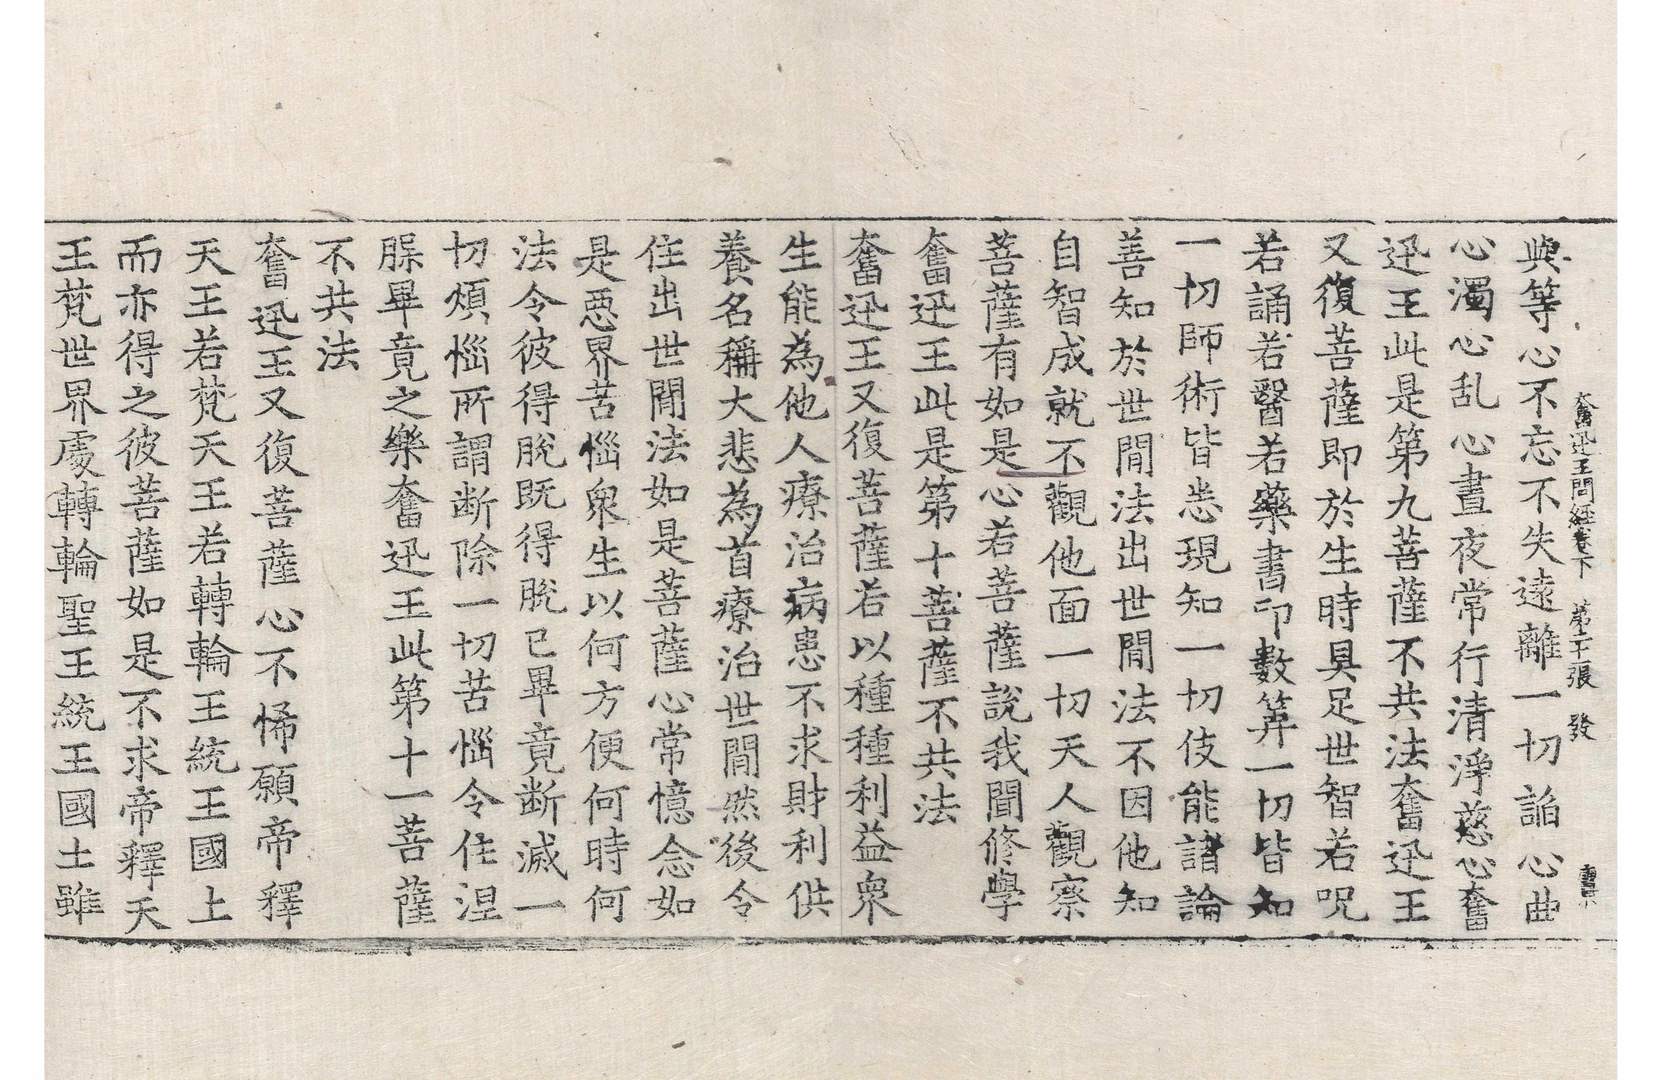 奮迅王問經卷下 第二十張 發
與等心不忘不失遠離一切諂心曲
心濁心乱心晝夜常行清淨慈心奮
迅王此是第九菩薩不共法奮迅王
又復菩薩即於生時具足世智若呪
若誦若醫若藥書印數筭一切皆知
一切師術皆悉現知一切伎能諸論
善知於世閒法出世閒法不因他知
自智成就不觀他面一切天人觀察
菩薩有如是心若菩薩說我聞修學
奮迅王此是第十菩薩不共法
奮迅王又復菩薩若以種種利益衆
生能為他人療治病患不求財利供
養名稱大悲為首療治世閒然後令
住出世閒法如是菩薩心常憶念如
是惡界苦惱衆生以何方便何時何
法令彼得脫既得脫已畢竟断滅一
切煩惱所謂断除一切苦惱令住涅
槃畢竟之樂奮迅王此第十一菩薩
不共法
奮迅王又復菩薩心不悕願帝釋
天王若梵天王若轉輪王統王國土
而亦得之彼菩薩如是不求帝釋天
王梵世界處轉輪聖王統王國土雖